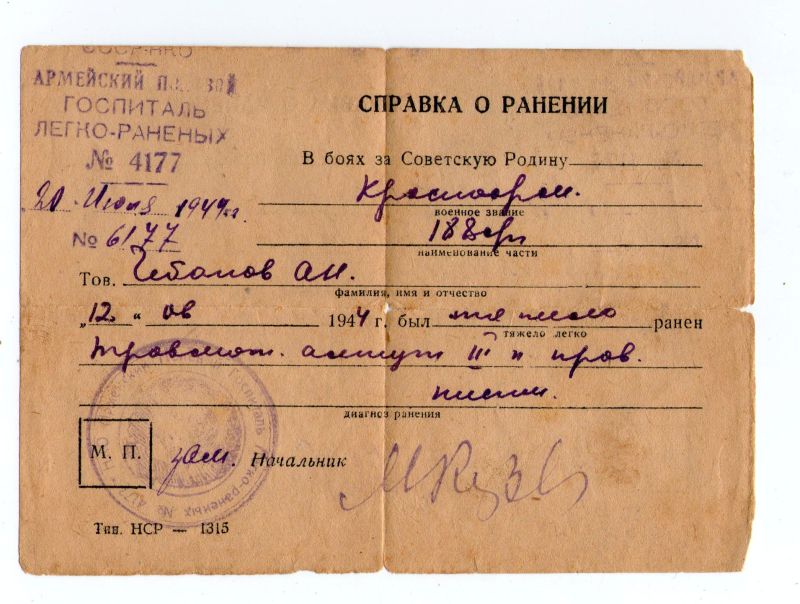 СССР-НКО
АРМЕЙСКИЙ
ГОСПИТАЛЬ
ЛЕГКО-РАНЕНЫХ
№ 4177
20 Июля 1944 г.
№ 6177
СПРАВКА О РАНЕНИИ
В боях за Советскую Родину
Красноарм.
военное звание
188
наименование части
Тов. Чебанов А.Н.
фамилия, имя и отчество
„12“ 1944 г. был тяжело ранен
тяжело легко
ампут III п прав.
кисти.
диагноз ранения
М. П.
зам. Начальник
Тип. НСР — 1315